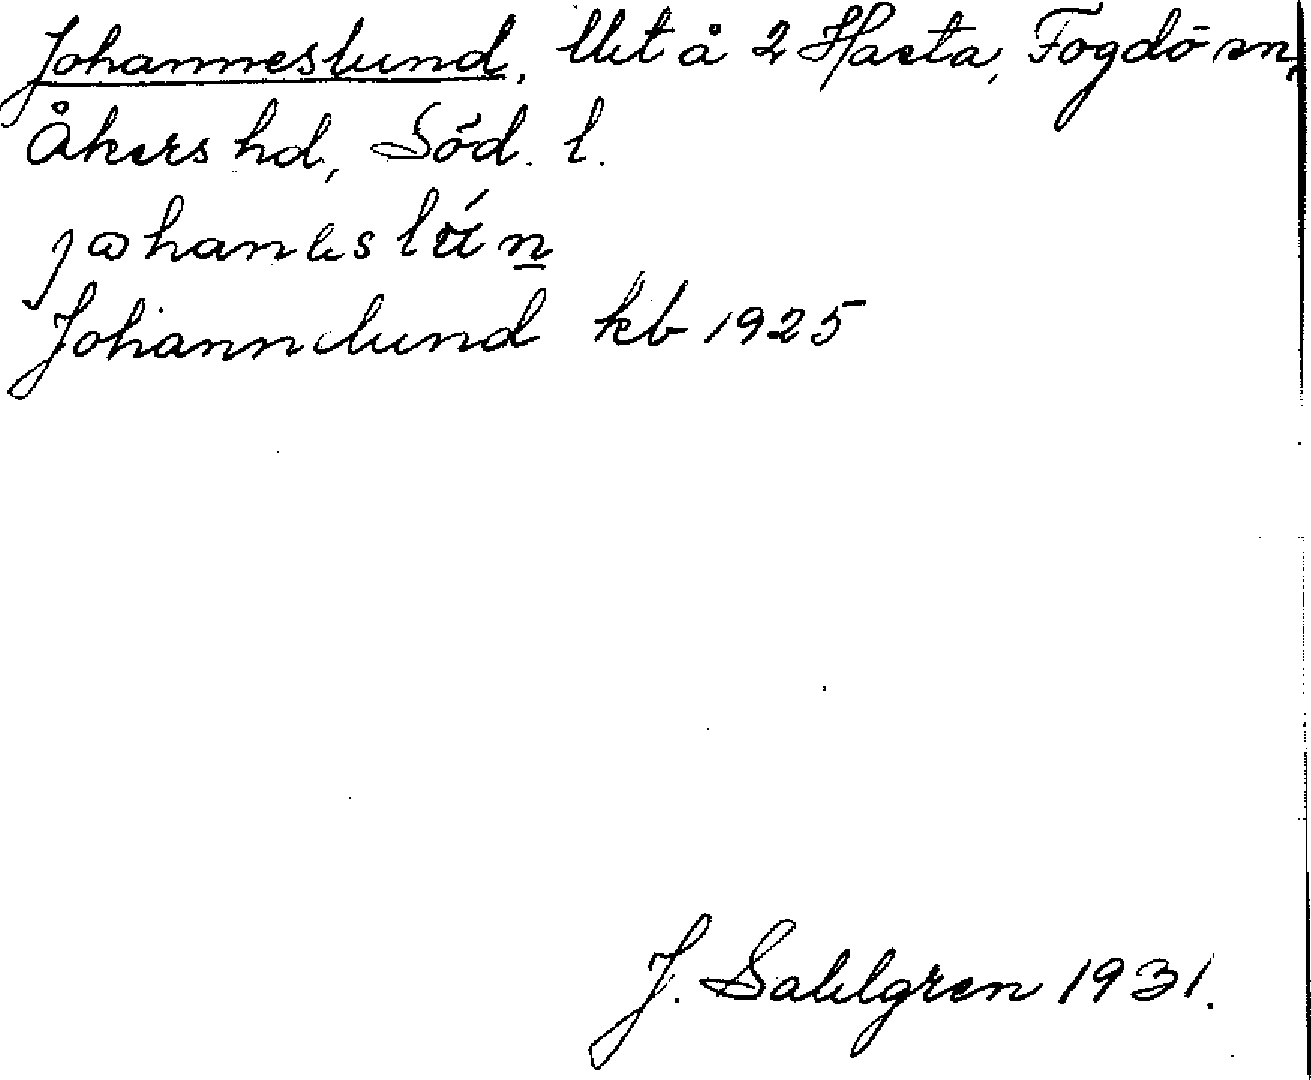 Johanneslund, lht å 2 Hasta, Fogdö sn,
Åkers hd, Söd. l.
Johannelund kb 1925
J. Sahlgren 1931.